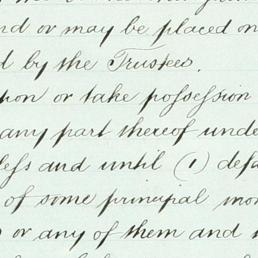 nd or may be placed on
d by the Trustees.
tion or take possession
any part thereof unde
less and until (1) defa
of some principal mon
s or any of them and i